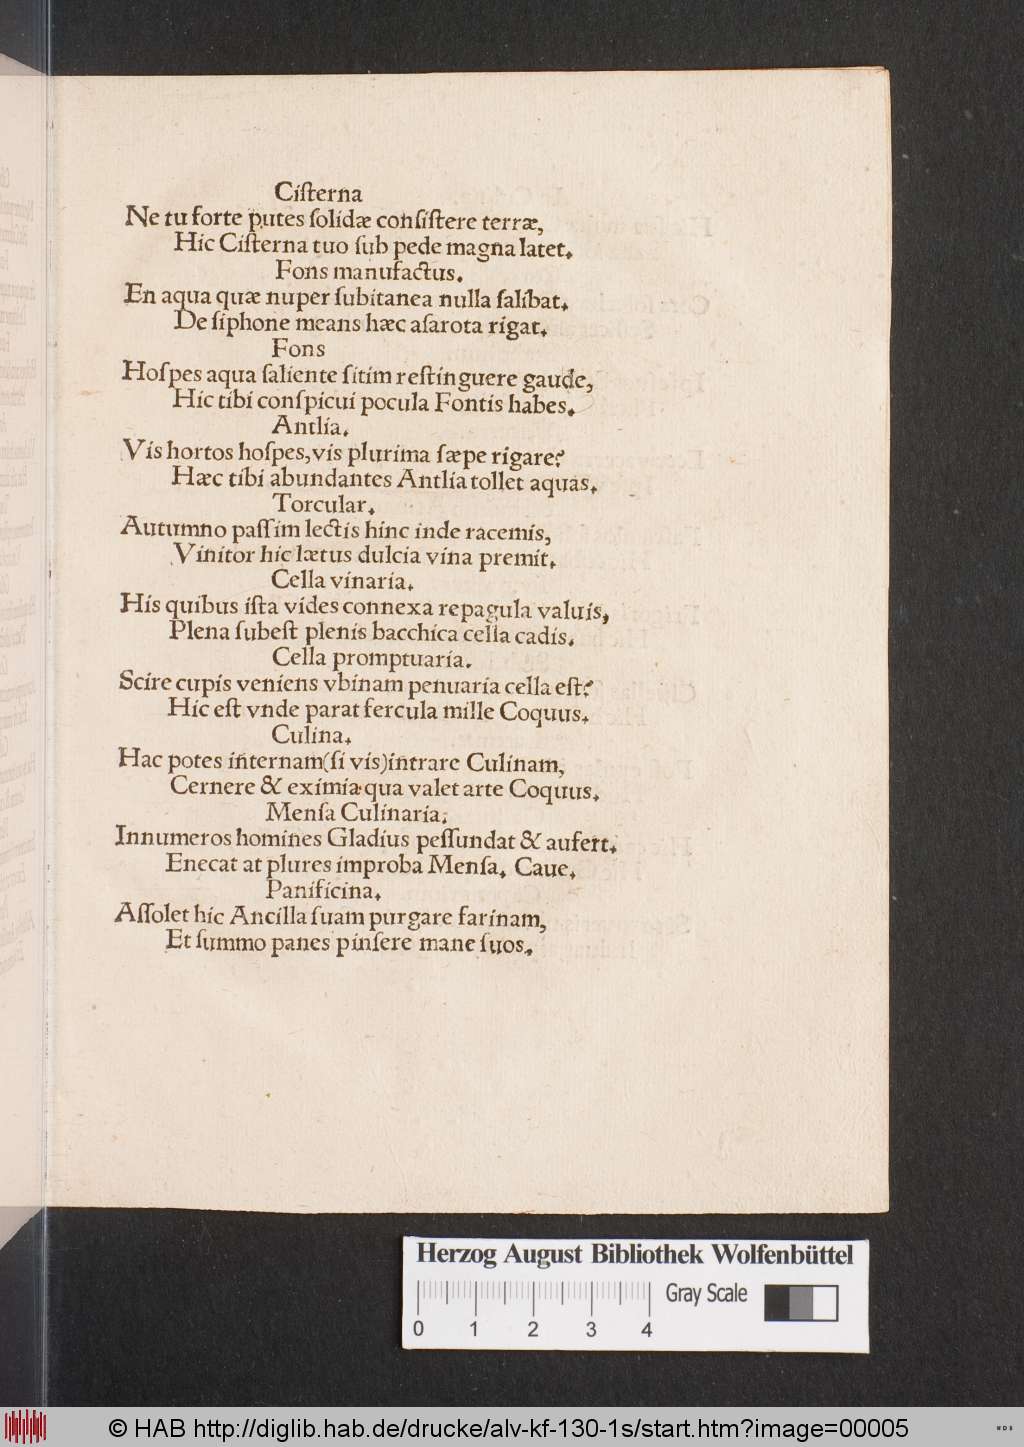 Ciſterna
Ne tu forte putes ſolidæ conſiſtere terræ,
Hic Ciſterna tuo ſub pede magna latet.
Fons manufactus.
En aqua quæ nuper ſubitanea nulla ſalibat.
De ſiphone means hæc aſarota rigat.
Fons
Hoſpes aqua ſaliente ſitim reſtinguere gaude,
Hic tibi conſpicui pocula Fontis habes.
Antlia.
Vis hortos hoſpes, vis plurima ſæpe rigare?
Hæc tibi abundantes Antlia tollet aquas.
Torcular.
Autumno paſſim lectis hinc inde racemis,
Vinitor hic lætus dulcia vina premit.
Cella vinaria.
His quibus iſta vides connexa repagula valuis,
Plena ſubeſt plenis bacchica cella cadis.
Cella promptuaria.
Scire cupis veniens vbinam penuaria cella eſt?
Hic eſt vnde parat fercula mille Coquus.
Culina.
Hac potes internam(ſi vis)intrare Culinam,
Cernere & eximia qua valet arte Coquus.
Menſa Culinaria.
Innumeros homines Gladius peſſundat & aufert.
Enecat at plures improba Menſa. Caue.
Panificina.
Aſſolet hic Ancilla ſuam purgare farinam,
Et ſummo panes pinſere mane ſuos.
Herzog August Bibliothek Wolfenbüttel
Gray Scale
0 1 2 3 4
© HAB http://diglib.hab.de/drucke/alv-kf-130-1s/start.htm?image=00005